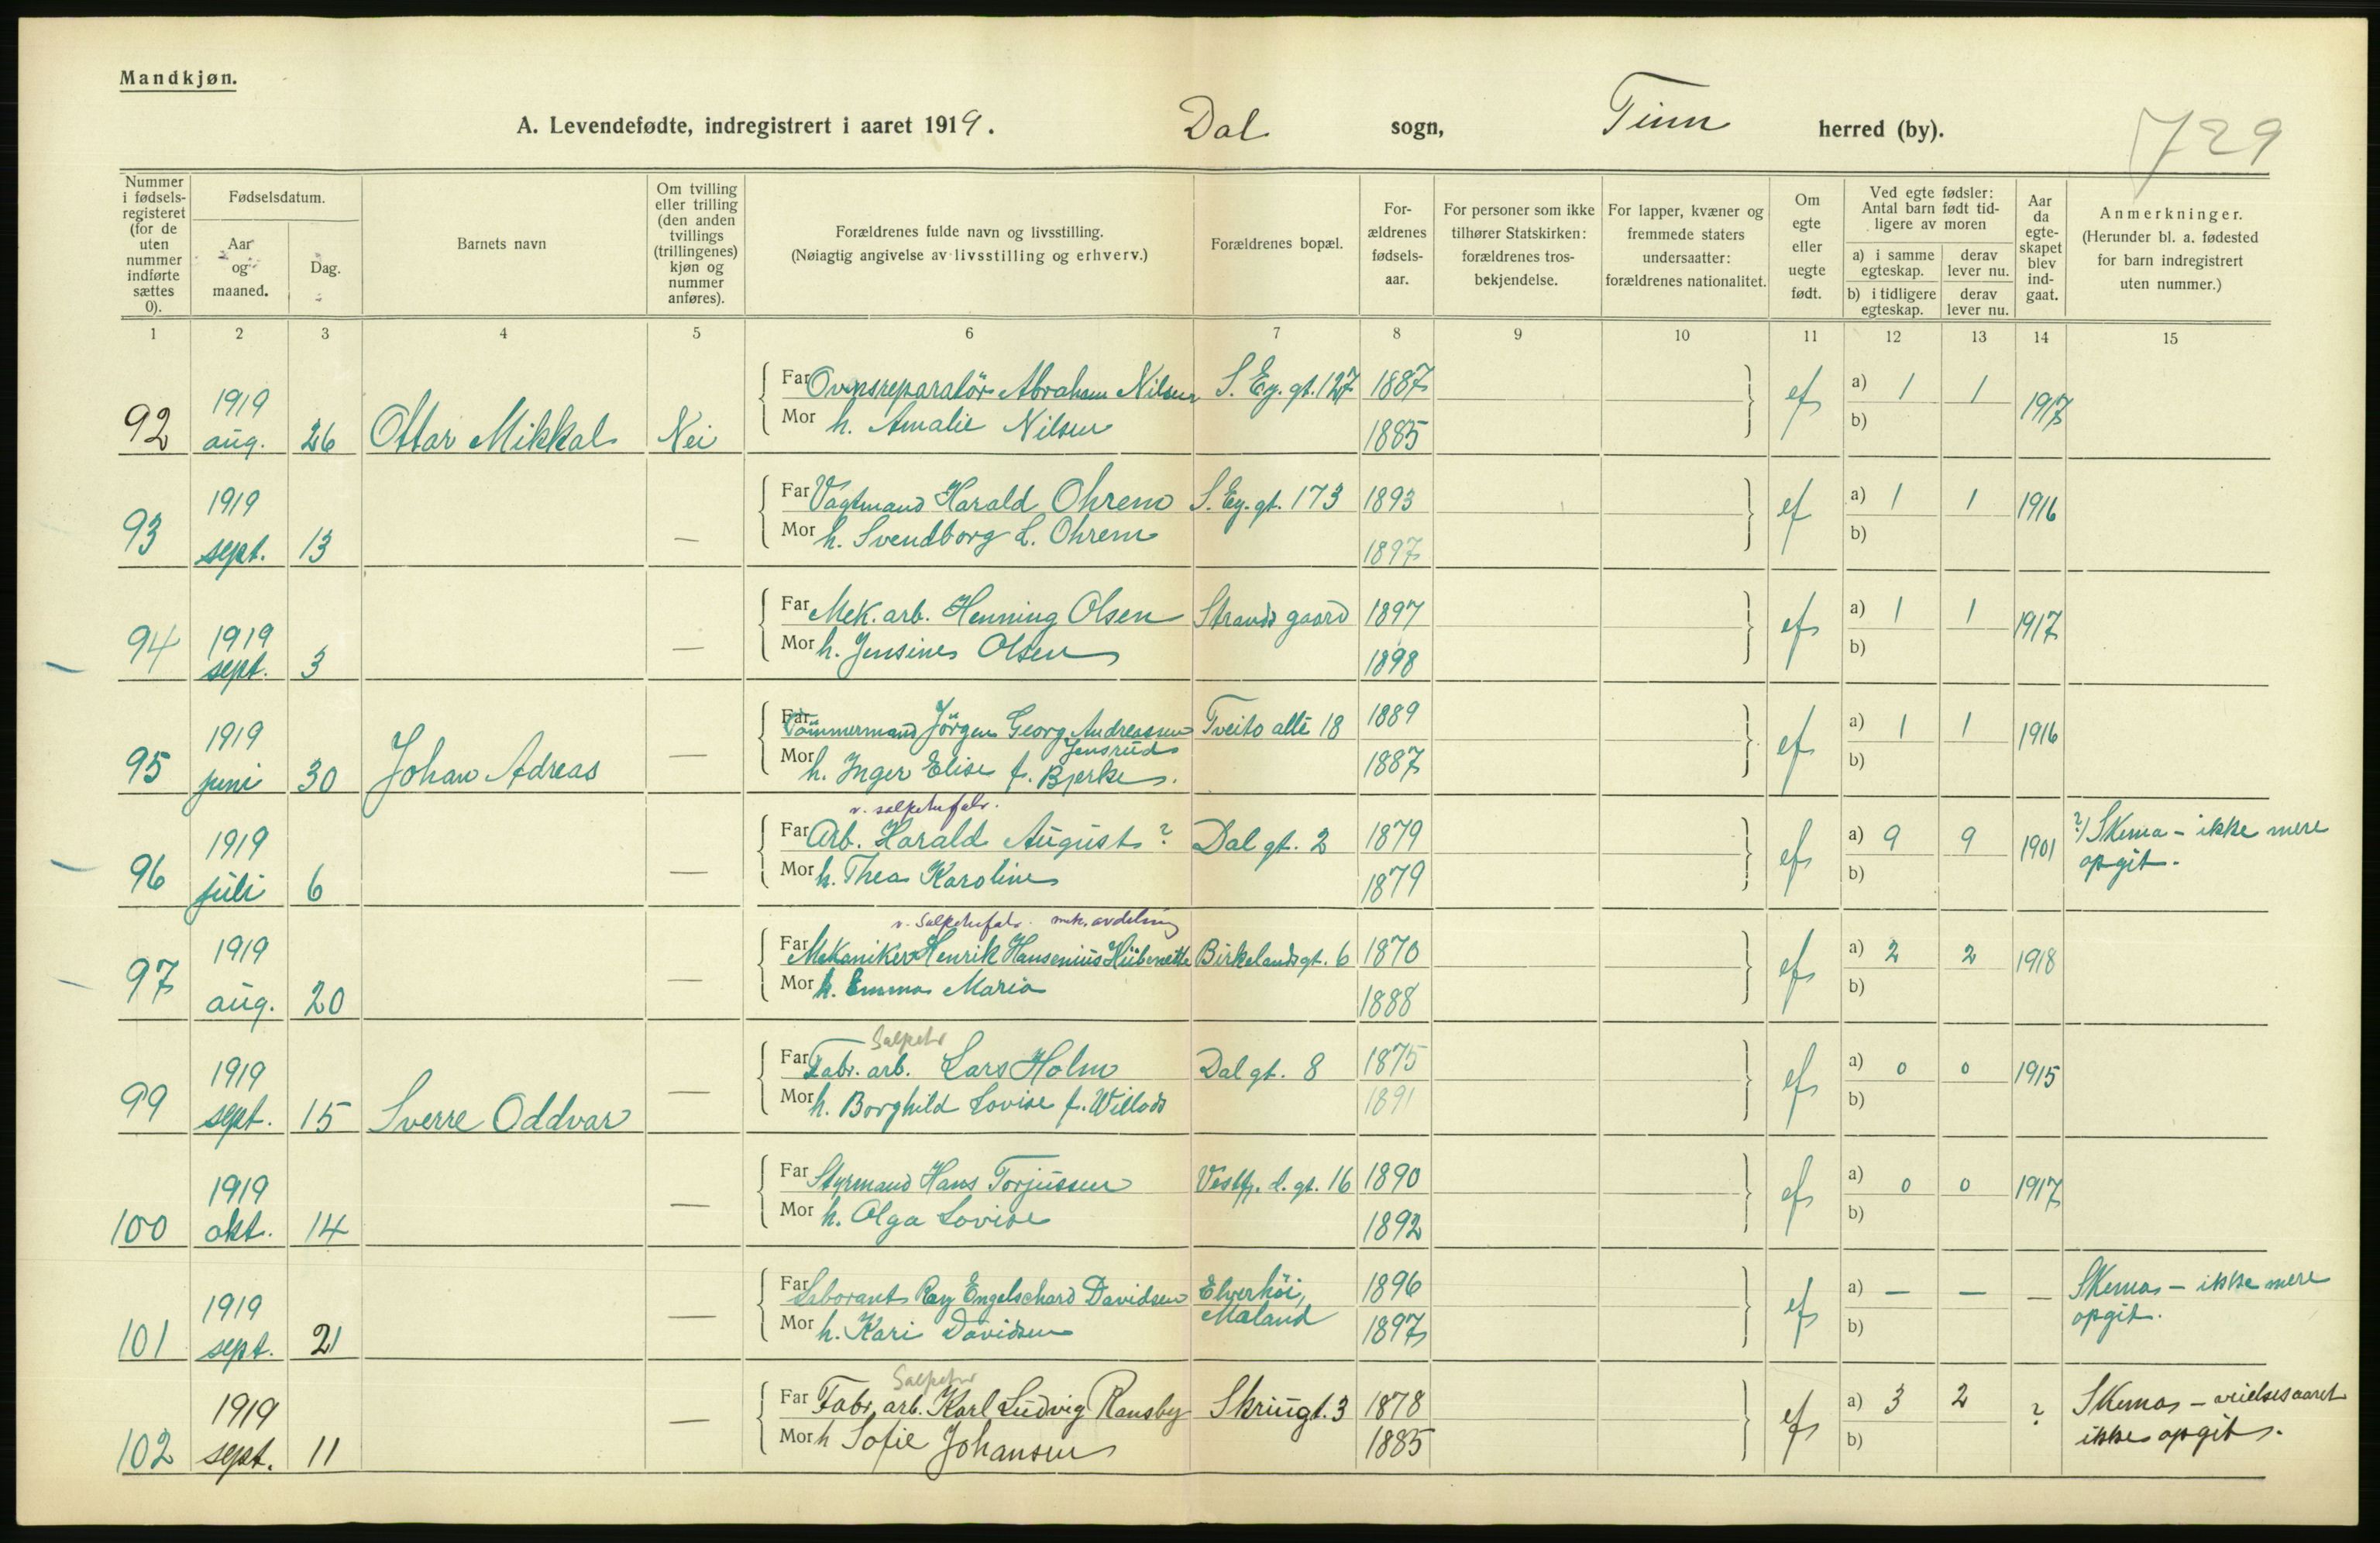 Mandkjøn.
A. Levendefødte, indregistrert i aaret 1919. Dal sogn, Tinn herred (by).
729
Nummer i fødsels-registeret (for de uten nummer indførte sættes 0).
Fødselsdatum.
Aar og maaned.
Dag.
Barnets navn
Om tvilling eller trilling (den anden tvillings (trillingenes) kjøn og nummer anføres).
Forældrenes fulde navn og livsstilling.
(Nøiagtig angivelse av livsstilling og erhverv.)
Forældrenes bopæl.
For-ældrenes fødsels-aar.
For personer som ikke tilhører Statskirken: forældrenes tros-bekjendelse.
For lapper, kvæner og fremmede staters undersaatter: forældrenes nationalitet.
Om egte eller uegte født.
Ved egte fødsler: Antal barn født tid-ligere av moren
a) i samme egteskap.
derav lever nu.
b) i tidligere egteskap.
derav lever nu.
Aar da egte-skapet blev ind-gaat.
Anmerkninger.
(Herunder bl. a. fødested for barn indregistrert uten nummer.)
1 2 3 4 5 6 7 8 9 10 11 12 13 14 15
92 1919 aug. 26 Ottar Mikkal Nei
Far Ovnsreparatör Abraham Nilsen S. Ey. gt. 127 1887 ef a) 1 1 1917
Mor h. Amalie Nilsen 1885 b)
93 1919 sept. 13 —
Far Vagtmand Harald Ohrem S. Ey. gt. 173 1893 ef a) 1 1 1916
Mor h. Svendborg L. Ohrem 1897 b)
94 1919 sept. 3 —
Far Mek. arb. Henning Olsen Strands gaard 1897 ef a) 1 1 1917
Mor h. Jensine Olsen 1898 b)
95 1919 juni 30 Johan Adreas —
Far Tömmermand Jörgen Georg Andreassen Jensrud Tveito allé 18 1889 ef a) 1 1 1916
Mor h. Inger Elise f. Bjerke. 1887 b)
v. salpeterfabr.
96 1919 juli 6 —
Far Arb. Harald August ? Dal gt. 2 1879 ef a) 9 9 1901 ?) Skema – ikke mere opgit.
Mor h. Thea Karoline 1879 b)
v. Salpeterfabr. mek. avdeling
97 1919 aug. 20 —
Far Mekaniker Henrik Hansenius Hübenette Birkelands gt. 6 1870 ef a) 2 2 1918
Mor h. Emma Maria 1888 b)
Salpeter
99 1919 sept. 15 Sverre Oddvar —
Far Fabr. arb. Lars Holm Dal gt. 8 1875 ef a) 0 0 1915
Mor h. Borghild Lovise f. Willads 1891 b)
100 1919 okt. 14 —
Far Styrmand Hans Torjussen Vestfj. d. gt. 16 1890 ef a) 0 0 1917
Mor h. Olga Lovise 1892 b)
101 1919 sept. 21 —
Far Laborant Ray Engelschard Davidsen Elverhöi, Maland 1896 ef a) — — — Skema – ikke mere opgit.
Mor h. Kari Davidsen 1897 b)
Salpeter
102 1919 sept. 11 —
Far Fabr. arb. Karl Ludvig Ransby Skriugt. 3 1878 ef a) 3 2 ? Skema – vielsesaaret ikke opgit.
Mor h Sofie Johansen 1885 b)